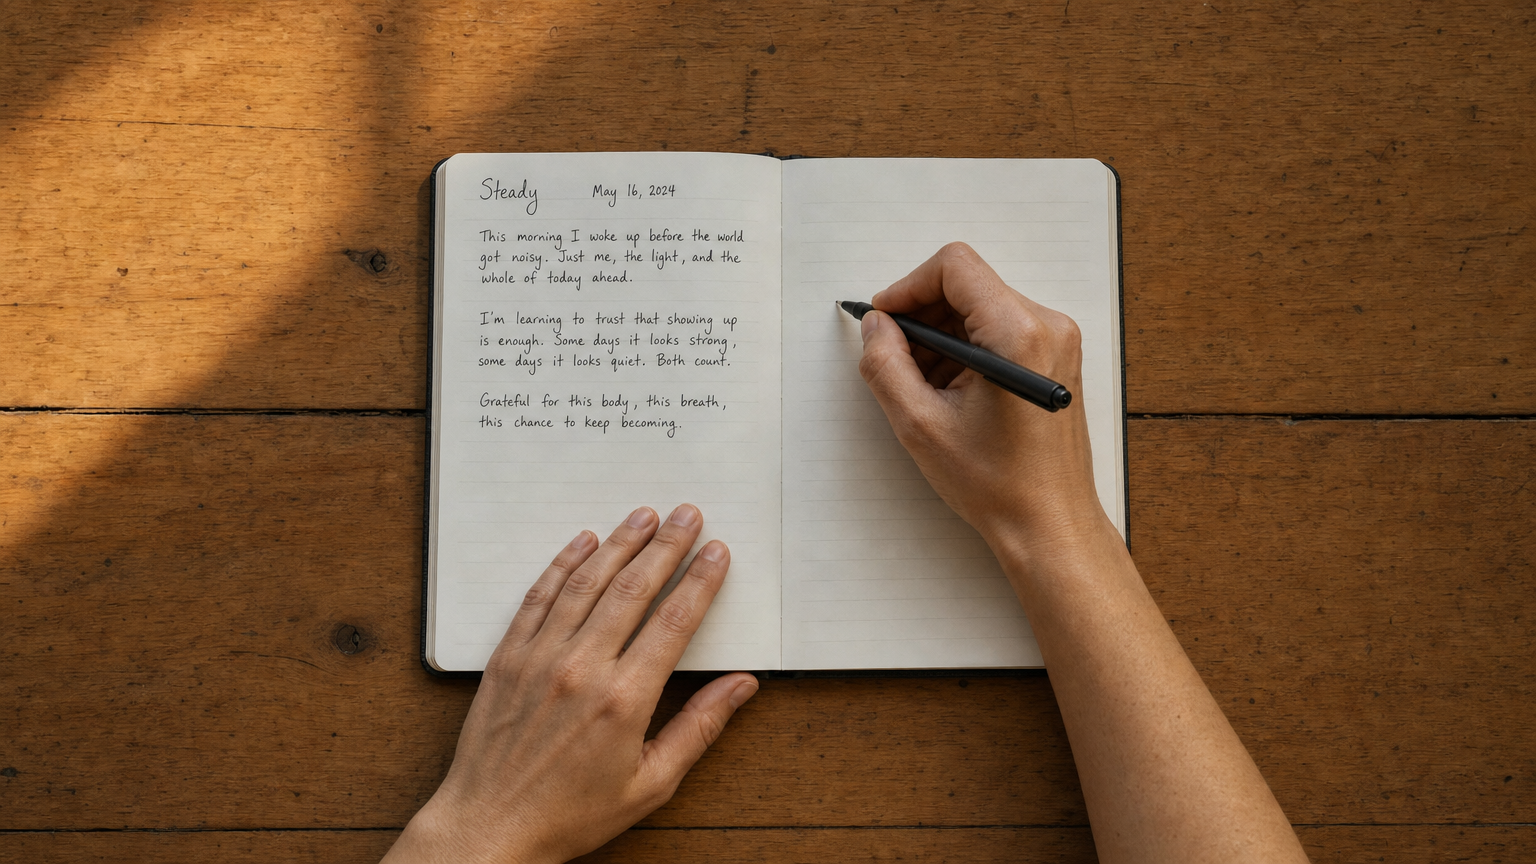 Steady May 16, 2024
This morning I woke up before the world
got noisy. Just me, the light, and the
whole of today ahead.
I'm learning to trust that showing up
is enough. Some days it looks strong,
some days it looks quiet. Both count.
Grateful for this body, this breath,
this chance to keep becoming..